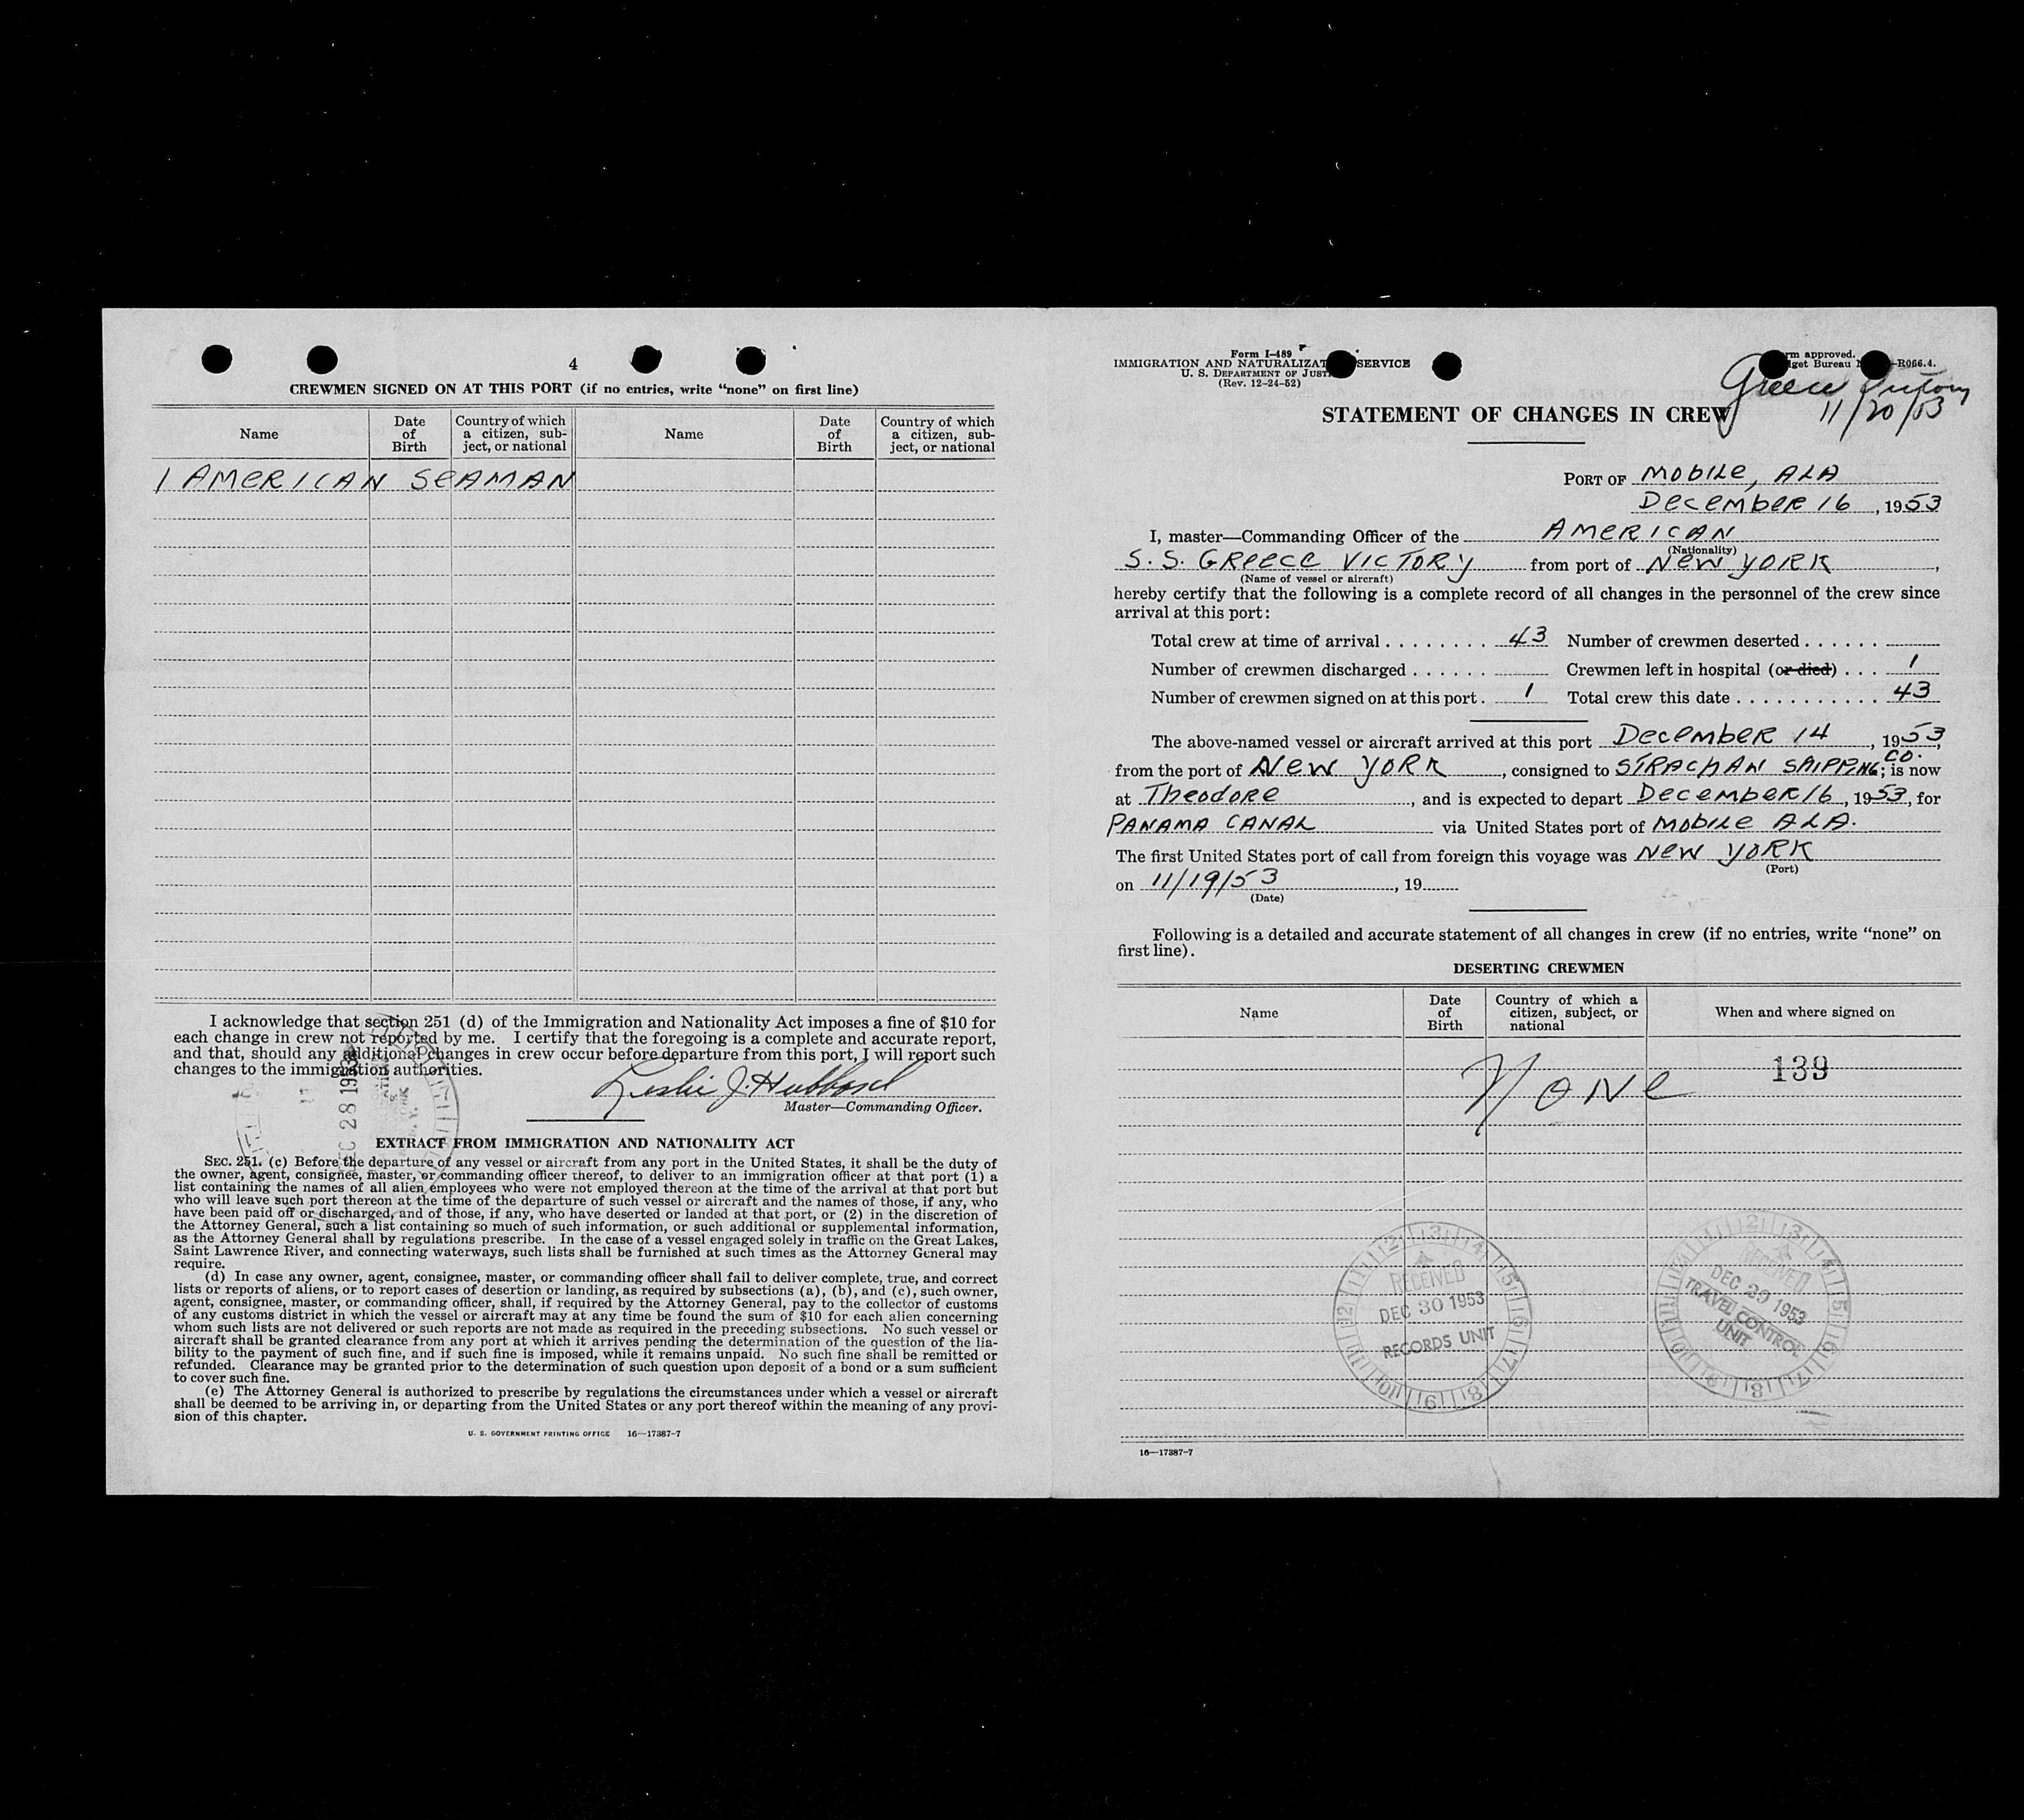 4
CREWMEN SIGNED ON AT THIS PORT (if no entries, write “none” on first line)
Name
Date of Birth
Country of which a citizen, subject, or national
Name
Date of Birth
Country of which a citizen, subject, or national
1 AMERICAN SEAMAN
I acknowledge that section 251 (d) of the Immigration and Nationality Act imposes a fine of $10 for
each change in crew not reported by me. I certify that the foregoing is a complete and accurate report,
and that, should any additional changes in crew occur before departure from this port, I will report such
changes to the immigration authorities.
Leslie J. Hubbard
Master—Commanding Officer.
DEC 28 1953
EXTRACT FROM IMMIGRATION AND NATIONALITY ACT
SEC. 251. (c) Before the departure of any vessel or aircraft from any port in the United States, it shall be the duty of
the owner, agent, consignee, master, or commanding officer thereof, to deliver to an immigration officer at that port (1) a
list containing the names of all alien employees who were not employed thereon at the time of the arrival at that port but
who will leave such port thereon at the time of the departure of such vessel or aircraft and the names of those, if any, who
have been paid off or discharged, and of those, if any, who have deserted or landed at that port, or (2) in the discretion of
the Attorney General, such a list containing so much of such information, or such additional or supplemental information,
as the Attorney General shall by regulations prescribe. In the case of a vessel engaged solely in traffic on the Great Lakes,
Saint Lawrence River, and connecting waterways, such lists shall be furnished at such times as the Attorney General may
require.
(d) In case any owner, agent, consignee, master, or commanding officer shall fail to deliver complete, true, and correct
lists or reports of aliens, or to report cases of desertion or landing, as required by subsections (a), (b), and (c), such owner,
agent, consignee, master, or commanding officer, shall, if required by the Attorney General, pay to the collector of customs
of any customs district in which the vessel or aircraft may at any time be found the sum of $10 for each alien concerning
whom such lists are not delivered or such reports are not made as required in the preceding subsections. No such vessel or
aircraft shall be granted clearance from any port at which it arrives pending the determination of the question of the lia-
bility to the payment of such fine, and if such fine is imposed, while it remains unpaid. No such fine shall be remitted or
refunded. Clearance may be granted prior to the determination of such question upon deposit of a bond or a sum sufficient
to cover such fine.
(e) The Attorney General is authorized to prescribe by regulations the circumstances under which a vessel or aircraft
shall be deemed to be arriving in, or departing from the United States or any port thereof within the meaning of any provi-
sion of this chapter.
U. S. GOVERNMENT PRINTING OFFICE 16—17387-7
Form I-489
IMMIGRATION AND NATURALIZAT SERVICE
U. S. DEPARTMENT OF JUST
(Rev. 12-24-52)
rm approved.
get Bureau -R066.4.
Greece Victory
11/20/53
STATEMENT OF CHANGES IN CREW
PORT OF MOBILE, ALA
DECEMBER 16, 1953
I, master—Commanding Officer of the AMERICAN
(Nationality)
S. S. GREECE VICTORY from port of NEW YORK,
(Name of vessel or aircraft)
hereby certify that the following is a complete record of all changes in the personnel of the crew since
arrival at this port:
Total crew at time of arrival . . . . . . . . 43 Number of crewmen deserted . . . . . .
Number of crewmen discharged . . . . . . Crewmen left in hospital (or died) . . . 1
Number of crewmen signed on at this port . 1 Total crew this date . . . . . . . . . . . 43
The above-named vessel or aircraft arrived at this port DECEMBER 14, 1953,
from the port of NEW YORK, consigned to STRACHAN SHIPPING CO.; is now
at THEODORE, and is expected to depart DECEMBER 16, 1953, for
PANAMA CANAL via United States port of MOBILE ALA.
The first United States port of call from foreign this voyage was NEW YORK
(Port)
on 11/19/53, 19
(Date)
Following is a detailed and accurate statement of all changes in crew (if no entries, write “none” on
first line).
DESERTING CREWMEN
Name
Date of Birth
Country of which a citizen, subject, or national
When and where signed on
NONE
139
RECEIVED
DEC 30 1953
RECORDS UNIT
RECEIVED
DEC 29 1953
TRAVEL CONTROL
UNIT
16—17387-7